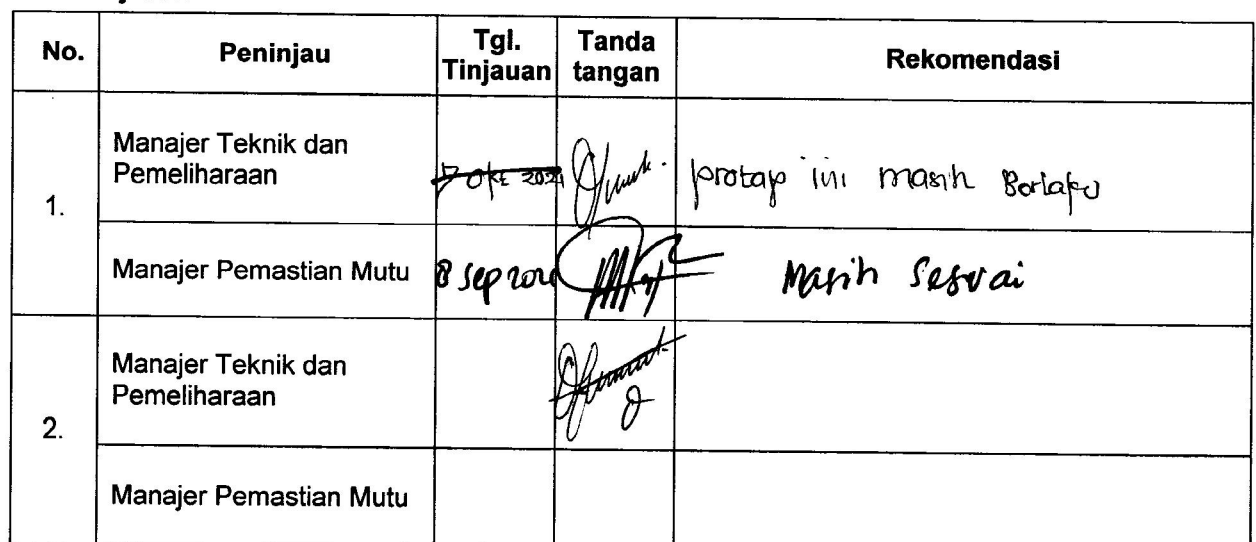 No. Peninjau Tgl. Tinjauan Tanda tangan Rekomendasi
1.
Manajer Teknik dan Pemeliharaan
protap ini masih Berlaku
Manajer Pemastian Mutu 8 Sep
Masih Sesuai
2.
Manajer Teknik dan Pemeliharaan
Manajer Pemastian Mutu